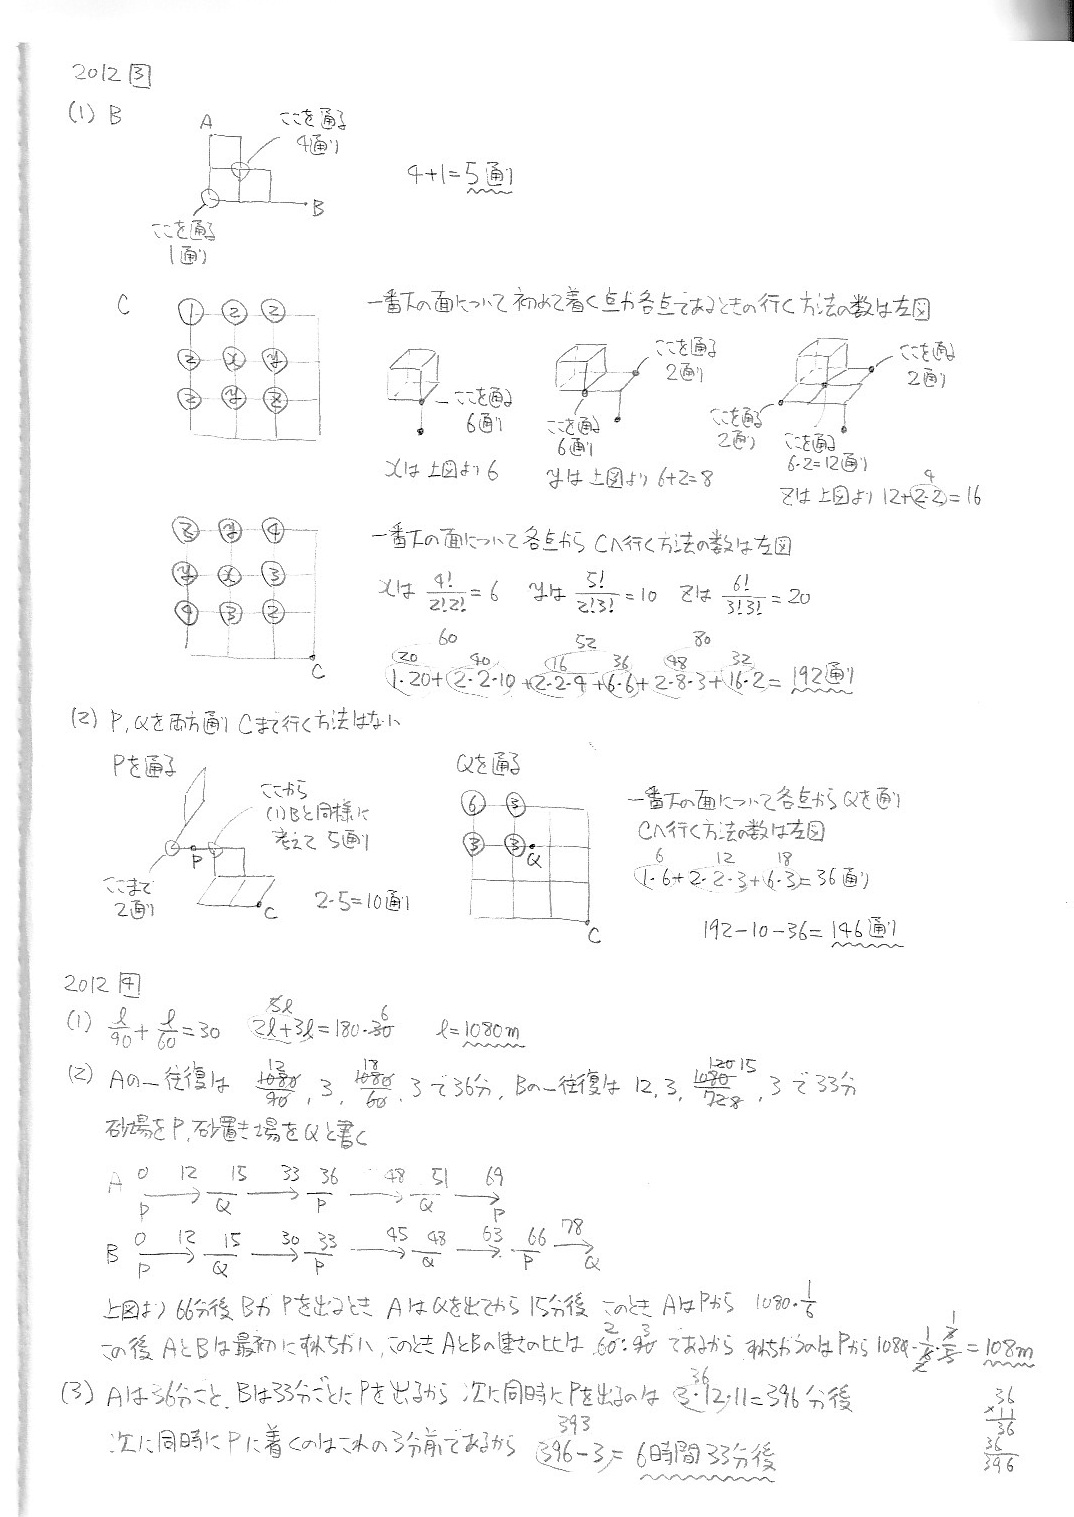 2012 3
(1) B
A
ここを通る
4通り
4+1=5通り
B
ここを通る
1通り
C
1 2 2
2 x y
2 y z
一番下の面について初めて着く点が各点であるときの行く方法の数は左図
ここを通る
6通り
xは上図より6
ここを通る
2通り
ここを通る
6通り
yは上図より 6+2=8
ここを通る
2通り
ここを通る
2通り
ここを通る
6·2=12通り
4
zは上図より 12+2·2=16
z y 4
y x 3
4 3 2
C
一番下の面について各点からCへ行く方法の数は左図
xは 4!/2!2! = 6 yは 5!/2!3! = 10 zは 6!/3!3! = 20
60 52 80
20 40 16 36 48 32
1·20+2·2·10+2·2·4+6·6+2·8·3+16·2=192通り
(2) P,Qを両方通りCまで行く方法はない
Pを通る
ここから
(1)Bと同様に
考えて 5通り
P
ここまで
2通り
C
2·5=10通り
Qを通る
6 3
3 3 Q
C
一番下の面について各点からQを通り
Cへ行く方法の数は左図
6 12 18
1·6+2·2·3+6·3=36通り
192-10-36=146通り
2012 4
(1) l/90 + l/60 = 30 5l 2l+3l=180·30 6 l=1080m
(2) Aの一往復は 12 1080/90, 3, 18 1080/60, 3 で36分, Bの一往復は 12, 3, 120 15 1080/72 8, 3 で33分
砂場をP,砂置き場をQと書く
A 0 12 15 33 36 48 51 69
P Q P Q P
B 0 12 15 30 33 45 48 63 66 78
P Q P Q P Q
上図より 66分後 BがPを出るとき AはQを出てから 15分後 このとき AはPから 1080·1/6
この後 AとBは最初にすれちがい,このときAとBの速さの比は 60:90 2 3 であるから すれちがうのはPから 1080·1/6·2/5=108m
(3) Aは36分ごと,Bは33分ごとにPを出るから 次に同時にPを出るのは 3·12·11=396分後
36
393
次に同時にPに着くのはこれの3分前であるから 396-3=6時間33分後
36
×11
36
36
396